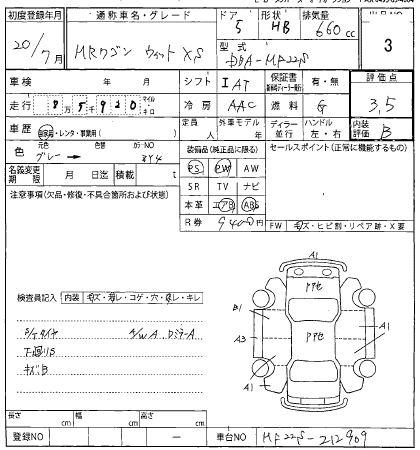 初度登録年月 通称車名・グレード ドア 形状 排気量
20/7月 MRワゴン ウィットXS 5 HB 660cc 3
型式 DBA-MF22S
車検 年 月 シフト IAT 保証書 有・無 評価点
走行 8万5920 マイル キロ 冷房 AAC 燃料 G 3,5
車歴 自家用・レンタ・事業用( ) 定員 人 外車モデル 年 ディーラー 並行 ハンドル 左・右 内装評価 B
色 元色 グレー → 色替 カラーNO 装備品(純正品に限る) セールスポイント(正常に機能するもの)
PS PW AW
名義変更期限 月 日迄 積載 t SR TV ナビ
注意事項(欠品・修復・不具合箇所および状態) 本革 エアB ABS
R券 9400円 FW キズ・ヒビ割・リペア跡・X要
A1
検査員記入 内装 キズ・汚レ・コゲ・穴・スレ・キレ
B1
A3 A1
下廻りS
キズB
A1
長さ cm 幅 cm 高さ cm
登録NO — 車台NO MF22S-212909